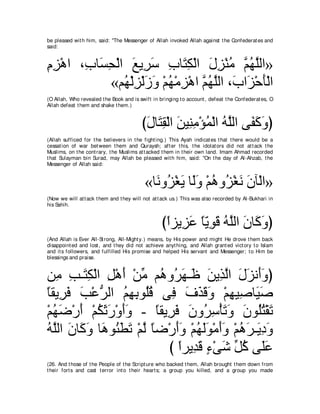 be pleased with him, said: "The Messenger of Allah invoked Allah against the Confederates and
said:
«اللَّهُمَّ مُنْزِلَ الْكِتَابِ سَرِيعَ الْحِسَابِ، اهْزِمِ
الْأَحْزَابَ، اللَّهُمَّ اهْزِمْهُمْ وَزَلْزِلْهُم»
(O Allah, Who revealed the Book and is swift in bringing to account, defeat the Confederates, O
Allah defeat them and shake them.)
(وَكَفَى اللَّهُ الْمُؤْمِنِينَ الْقِتَالَ)
(Allah sufficed for the believers in the fighting.) This Ayah indicates that there would be a
cessation of war between them and Quraysh; after this, the idolators did not attack the
Muslims, on the contrary, the Muslims attacked them in their own land. Imam Ahmad recorded
that Sulayman bin Surad, may Allah be pleased with him, said: "On the day of Al-Ahzab, the
Messenger of Allah said:
«الْآنَ نَغْزُوهُمْ وَلَا يَغْزُونَا»
(Now we will attack them and they will not attack us.) This was also recorded by Al-Bukhari in
his Sahih.
(وَكَانَ اللَّهُ قَوِيًّا عَزِيزًا)
(And Allah is Ever All-Strong, All-Mighty.) means, by His power and might He drove them back
disappointed and lost, and they did not achieve anything, and Allah granted victory to Islam
and its followers, and fulfilled His promise and helped His servant and Messenger; to Him be
blessings and praise.
(وَأَنزَلَ الَّذِينَ ظَـهَرُوهُم مِّنْ أَهْلِ الْكِتَـبِ مِن
صَيَاصِيهِمْ وَقَذَفَ فِي قُلُوبِهِمُ الرُّعْبَ فَرِيقاً
تَقْتُلُونَ وَتَأْسِرُونَ فَرِيقاً - وَأَوْرَثَكُمْ أَرْضَهُمْ
وَدِيَـرَهُمْ وَأَمْوَلَهُمْ وَأَرْضاً لَّمْ تَطَئُوهَا وَكَانَ اللَّهُ
عَلَى كُلِّ شَىْءٍ قَدِيراً )
(26. And those of the People of the Scripture who backed them, Allah brought them down from
their forts and cast terror into their hearts; a group you killed, and a group you made